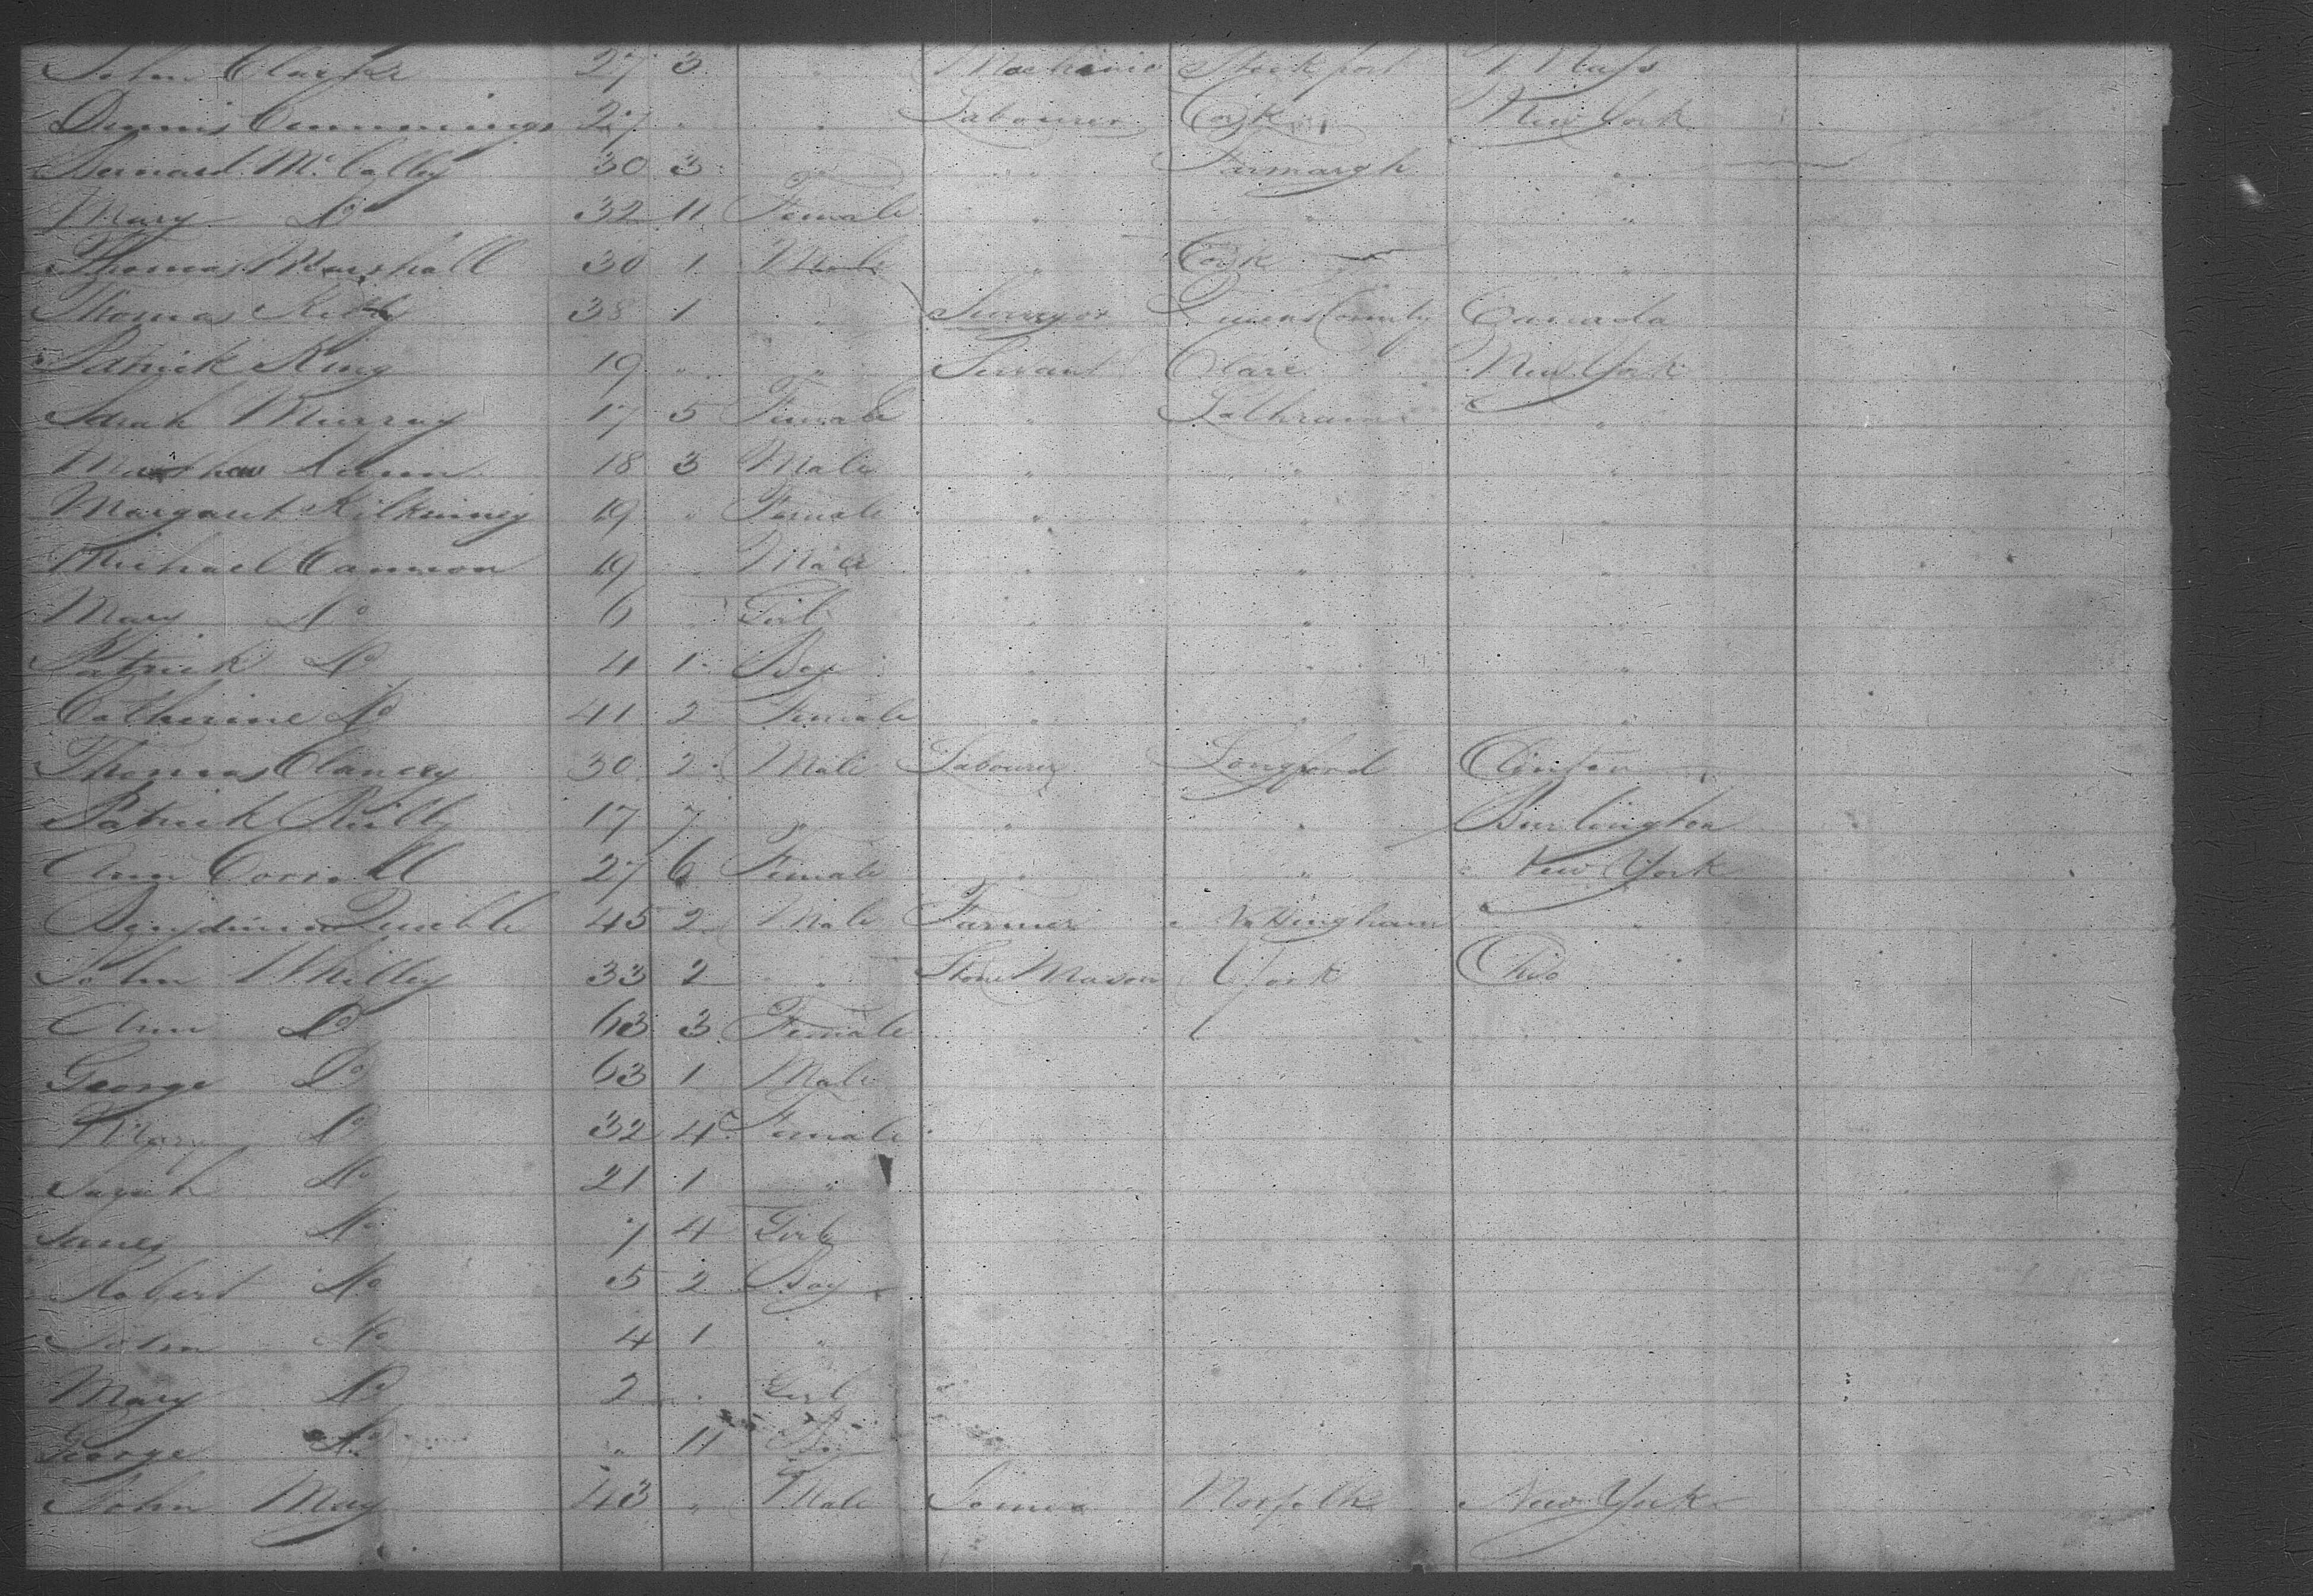 John 27 3 " Mechanic Stockport Mass
Dennis Cummings 27 " " Labourer Cork New York
Bernard McCalley 30 3 " " Farmargh "
Mary Do 32 11 Female " " "
Thomas Marshall 30 1 Male " Cork "
Thomas 38 1 " Surveyor Queens County Canada
Patrick King 19 " " Servant Clare New York
Sarah Murray 17 5 Female " "
18 3 Male " " "
Margaret Kilkenney 19 " Female " " "
Michael Cannon 19 " Male " " "
Mary Do 6 " Girl " " "
Patrick Do 4 1 Boy " " "
Catherine Do 41 2 Female " " "
Thomas Clancey 30 2 Male Labourer Longford Clinton
Patrick Reilly 17 7 " " " Burlington
Ann 27 6 Female " " New York
45 2 Male Farmer "
John 33 2 " Stone Mason York Ohio
Ann Do 63 3 Female
George Do 63 1 Male
Mary Do 32 4 Female
Sarah Do 21 1 "
Do 7 4 Girl
Robert Do 5 2 Boy
John Do 4 1 "
Mary Do 2 " Girl
George Do " 11 Boy
John May 43 " Male Norfolk New York